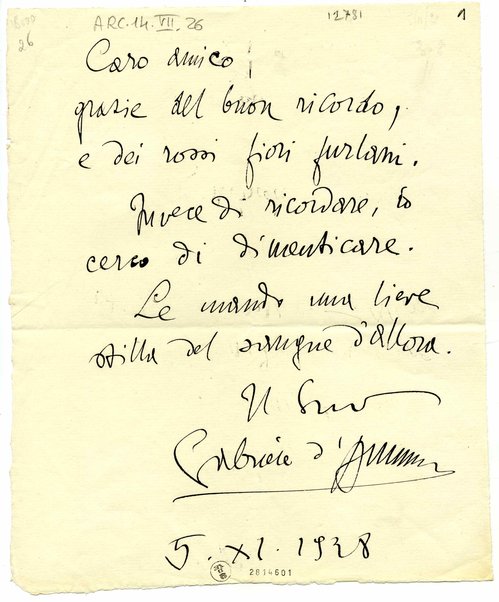 ARC.14.VII.26
12781
1
26
Caro amico,
grazie del buon ricordo,
e dei rossi fiori furlani.
Invece di ricordare, io
cerco di dimenticare.
Le mando una lieve
stilla del sangue d'allora.
Il Suo
Gabriele d'Annunzio
5. XI. 1928
2814601